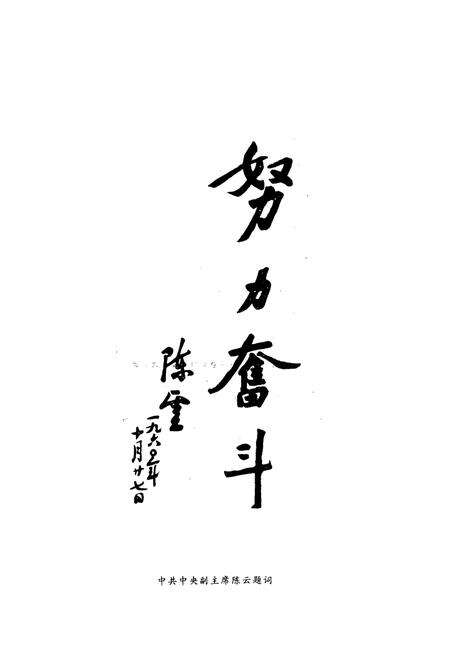 努力奮斗
陈雲
一九六五年
十月廿七日
中共中央副主席陈云题词